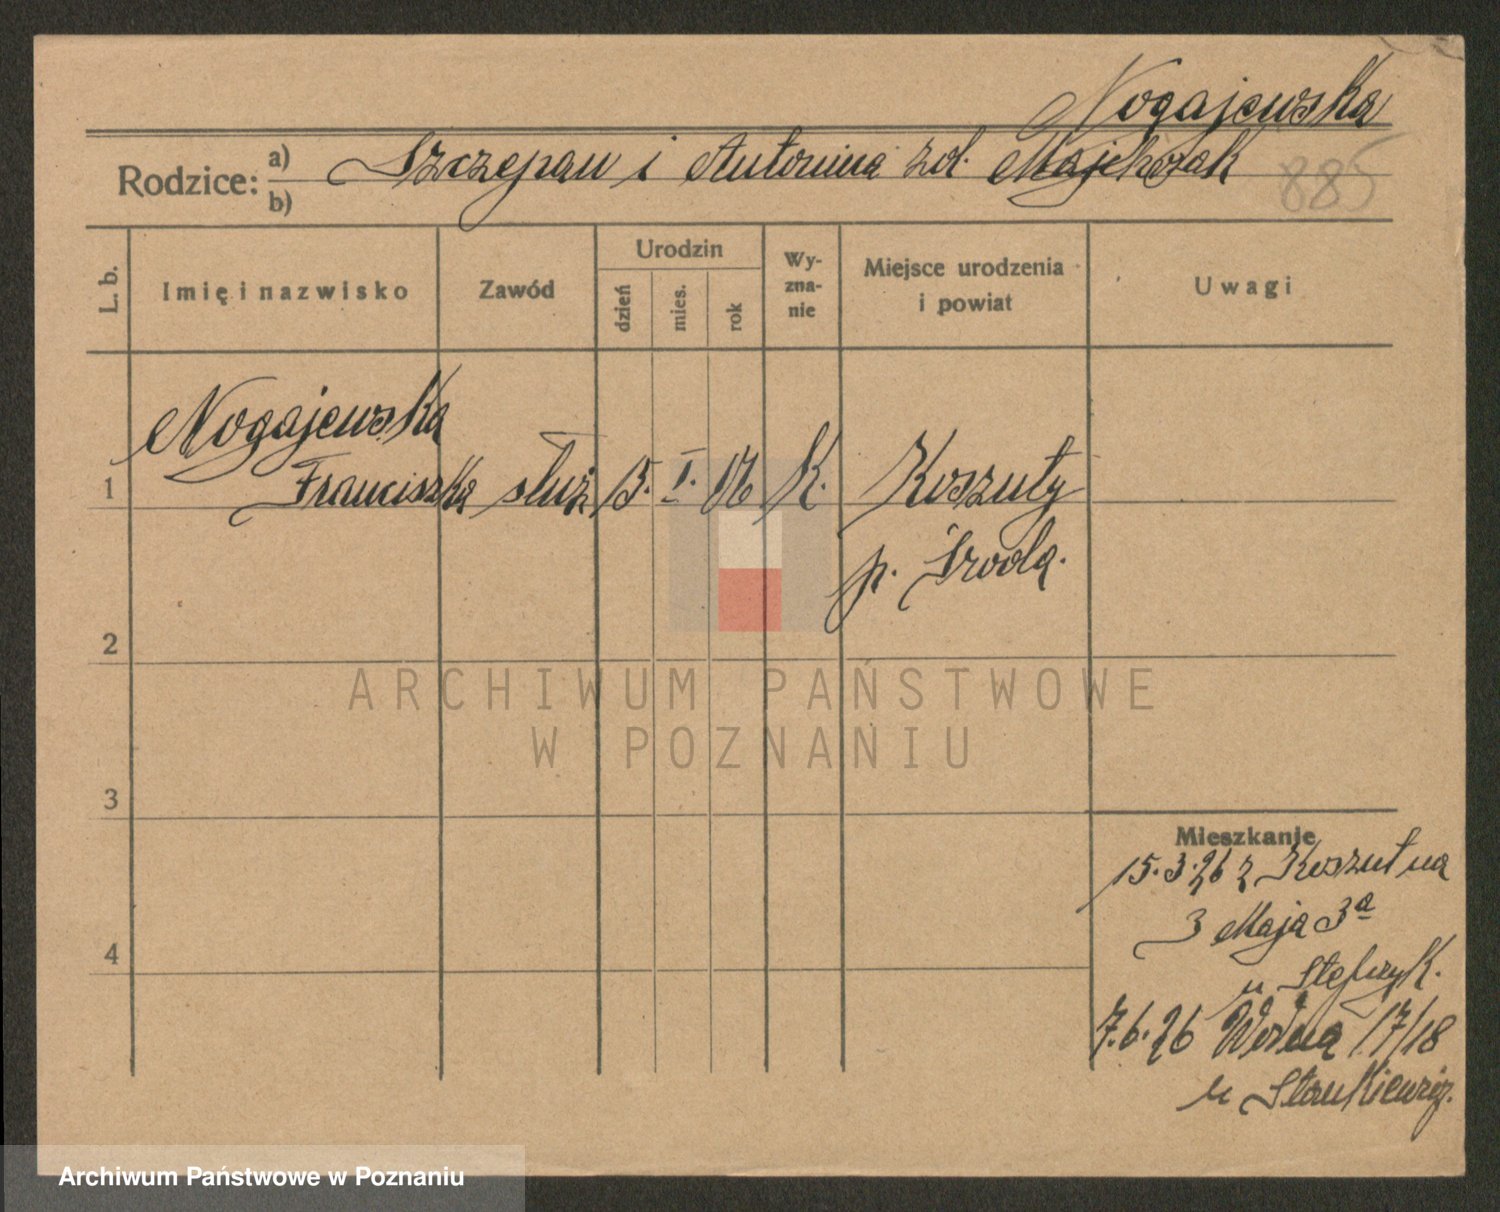 Nogajewska
Rodzice: a) Szczepan i Antonina zd. Majchrzak 885
b)
L. b. Imię i nazwisko Zawód Urodzin Wy-zna-nie Miejsce urodzenia i powiat Uwagi
dzień mies. rok
Nogajewska
1 Franciszka służ 13. I. 06 K. Koszuty
p. Środa.
2
ARCHIWUM PAŃSTWOWE
W POZNANIU
3
Mieszkanie
15.3.26 z Koszut na
3 Maja 3a
4
u
7.6.26 17/18
u Stankiewicz.
Archiwum Państwowe w Poznaniu